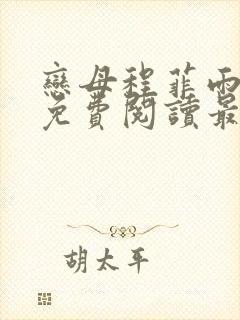 戀母程菲雨
免費閱讀最
胡太平